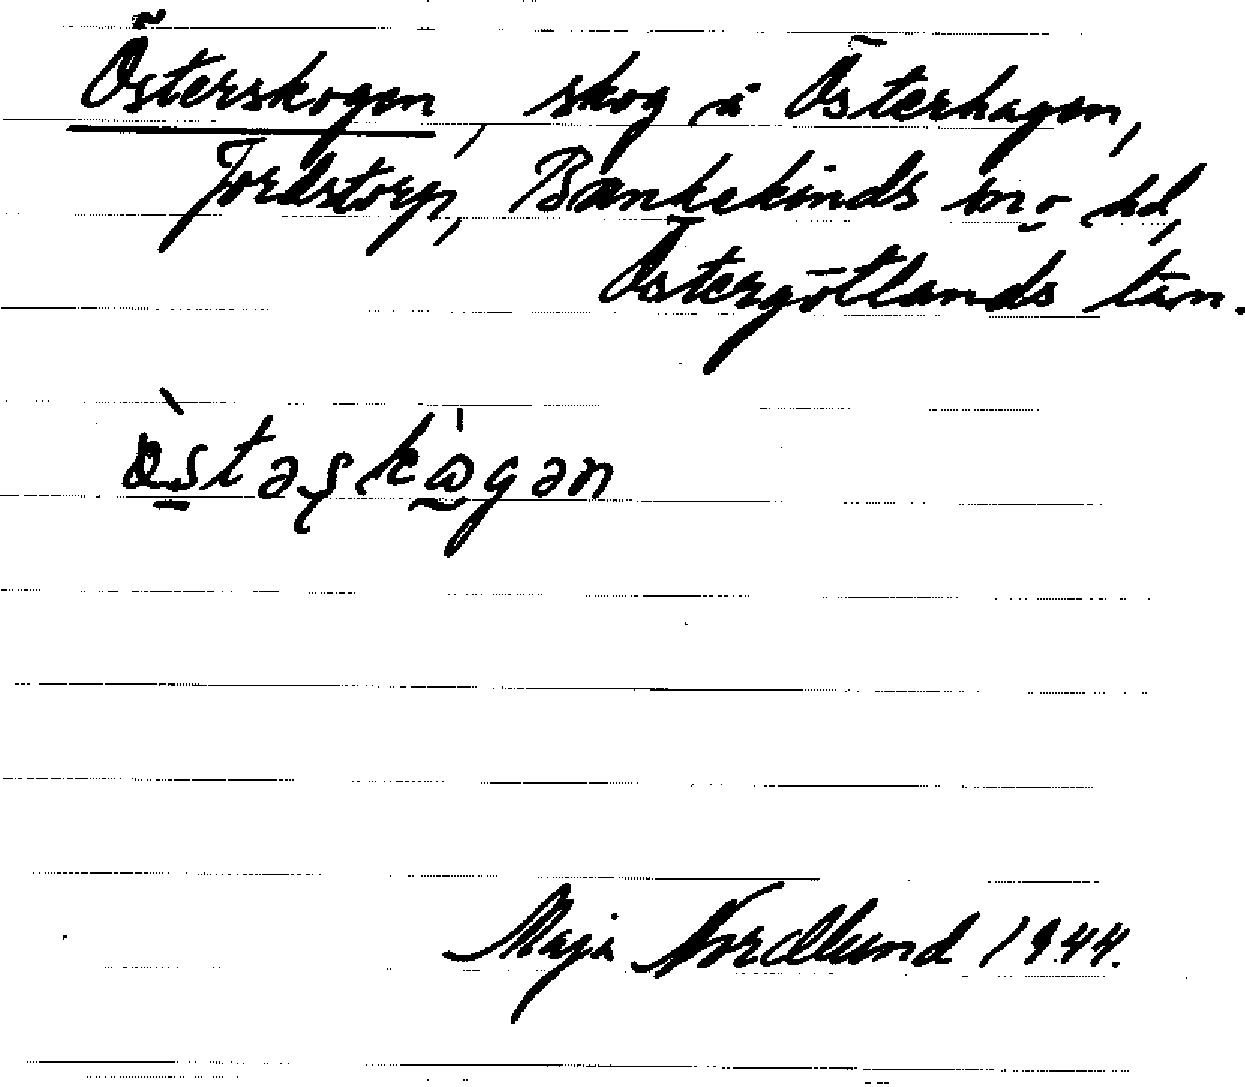 Österskogen, skog i Österhagen,
Jordstorp, Bankekinds sn o hd,
Östergötlands län.
östəşkɷ̀gən
Maja Nordlund 1944.